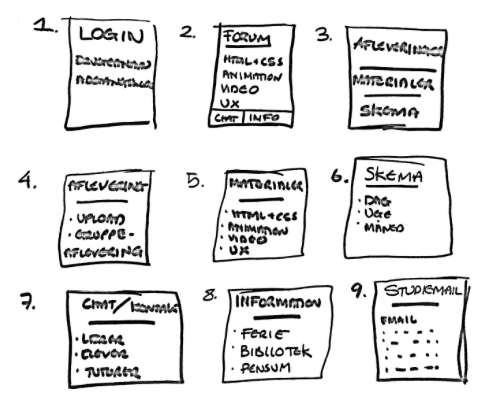 1.
LOGIN
2.
FORUM
HTML+CSS
ANIMATION
VIDEO
UX
CHAT INFO
3.
AFLEVERINGER
MATERIALER
SKEMA
4.
AFLEVERING
· UPLOAD
· GRUPPE-
AFLEVERING
5.
MATERIALER
· HTML+CSS
· ANIMATION
· VIDEO
· UX
6.
SKEMA
· DAG
· UGE
· MÅNED
7.
CHAT/KONTAKT
· LÆRER
· ELEVER
· TUTORER
8.
INFORMATION
· FERIE
· BIBLIOTEK
· PENSUM
9.
STUDIEMAIL
EMAIL